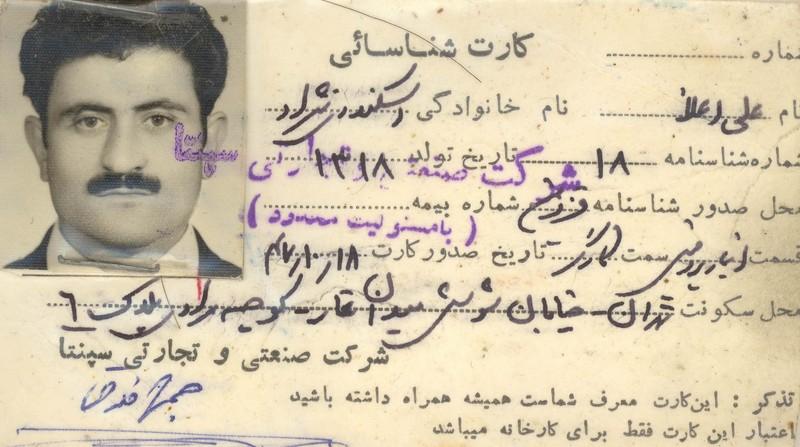 کارت شناسائی
شماره
نام علی اعلا نام خانوادگی اسکندری نژاد
شماره شناسنامه ۱۸ تاریخ تولد ۱۳۱۸
سپنتا
شرکت صنعتی و تجارتی
محل صدور شناسنامه شماره بیمه
(بامسئولیت محدود)
قسمت انبار سمت کارگر تاریخ صدور کارت ۴۷/۱۰/۱۸
محل سکونت تهران - خیابان شوش میدان غار - کوچه پلاک ۶
شرکت صنعتی و تجارتی سپنتا
تذکر : این کارت معرف شماست همیشه همراه داشته باشید
اعتبار این کارت فقط برای کارخانه میباشد